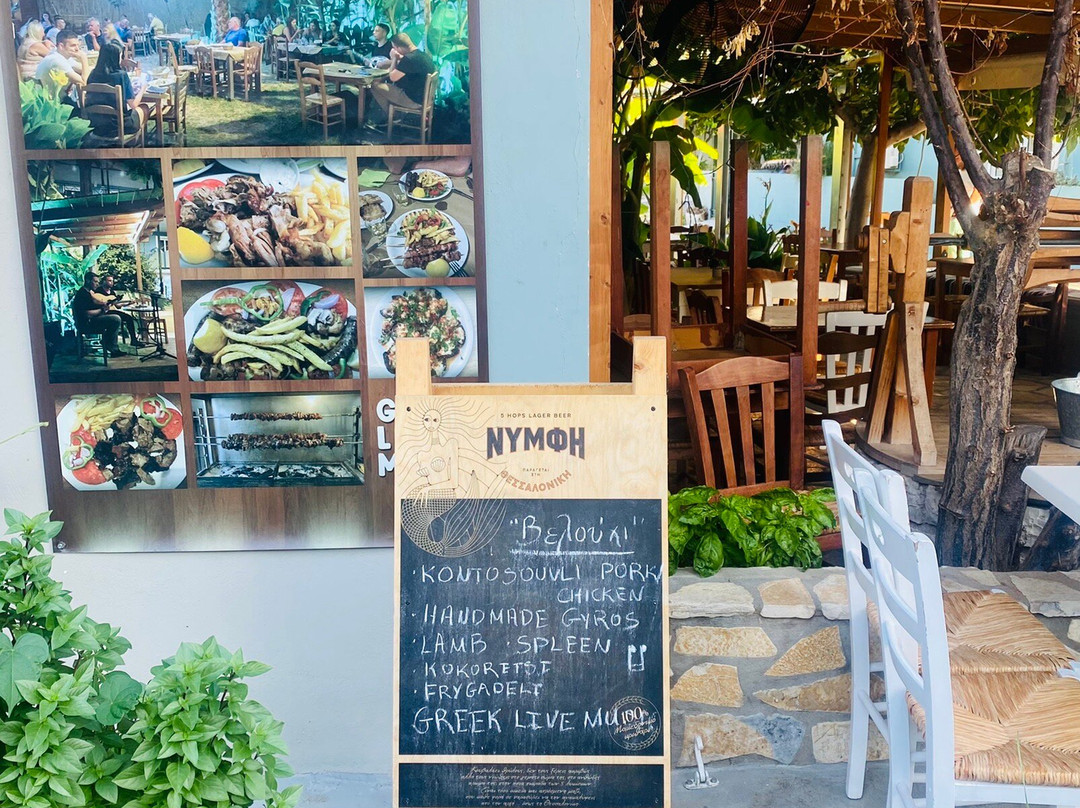 5 HOPS LAGER BEER
ΝΥΜΦΗ
ΠΑΡΑΓΕΤΑΙ
ΣΤΗ
ΘΕΣΣΑΛΟΝΙΚΗ
"Βελούχι"
· KONTOSOUVLI PORK/
CHICKEN
· HANDMADE GYROS
· LAMB · SPLEEN
· KOKORETSI
· FRYGADELI
GREEK LIVE MU
100%
G
L
M